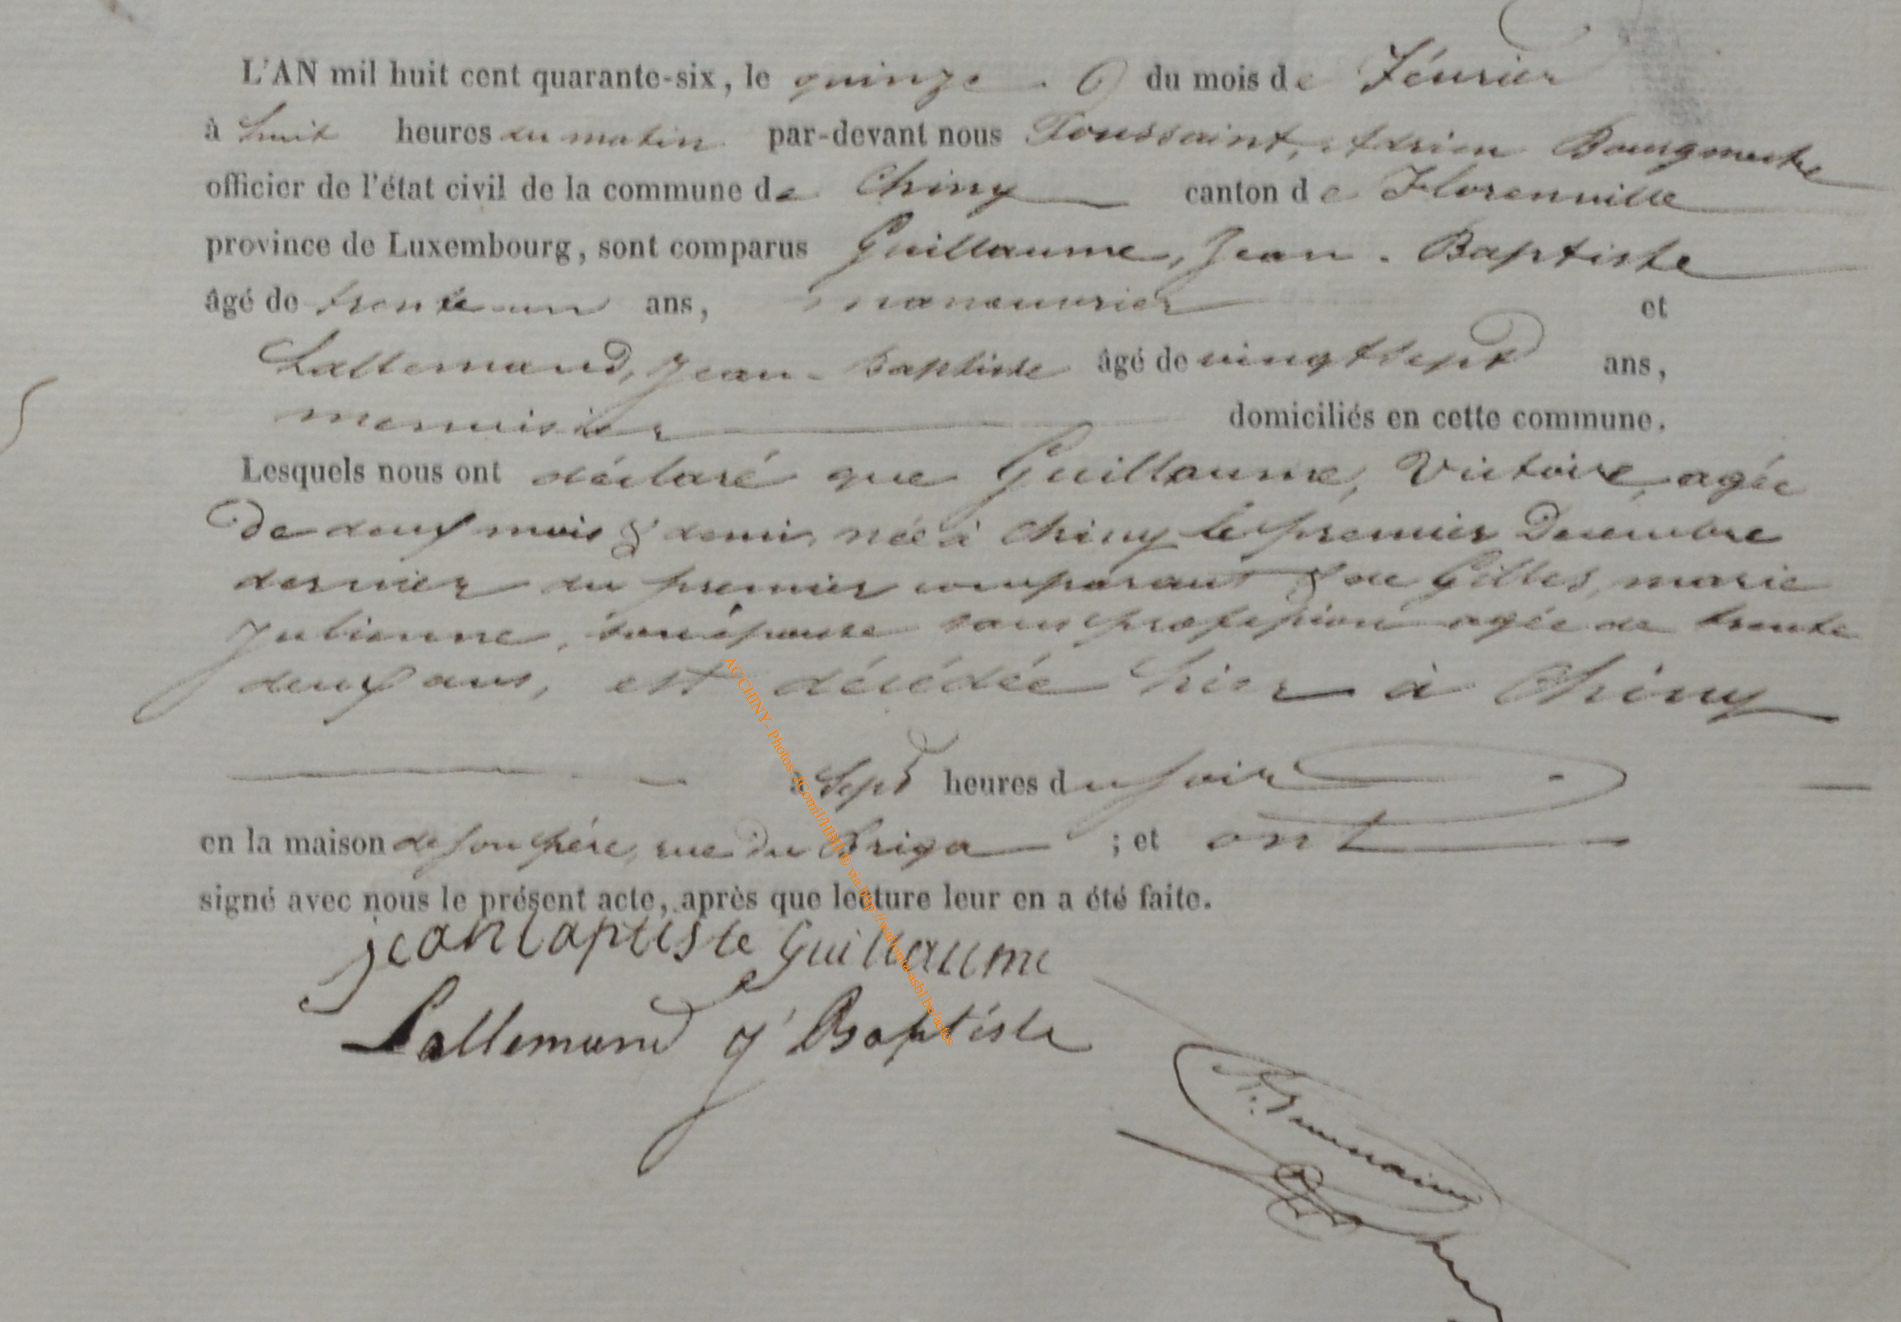 L'AN mil huit cent quarante-six, le quinze du mois de Février
à huit heures du matin par-devant nous Toussaint, Adrien Bourgmestre
officier de l'état civil de la commune de Chiny canton de Florenville
province de Luxembourg, sont comparus Guillaume, Jean-Baptiste
âgé de trente-un ans, manœuvrier et
Lallemand, Jean-Baptiste âgé de vingt sept ans,
menuisier domiciliés en cette commune.
Lesquels nous ont déclaré que Guillaume, Victoire, agée
de deux mois & demi, née à Chiny le premier Decembre
dernier du premier comparant & de Gilles, marie
Julienne, son épouse sans profession agée de trente
deux ans, est décédée hier à Chiny
à Sept heures du soir
en la maison de son père, rue du ; et ont
signé avec nous le présent acte, après que lecture leur en a été faite.
jean baptiste Guillaume
Lallemand j Baptiste
A. Toussaint
AC CHINY - Photos